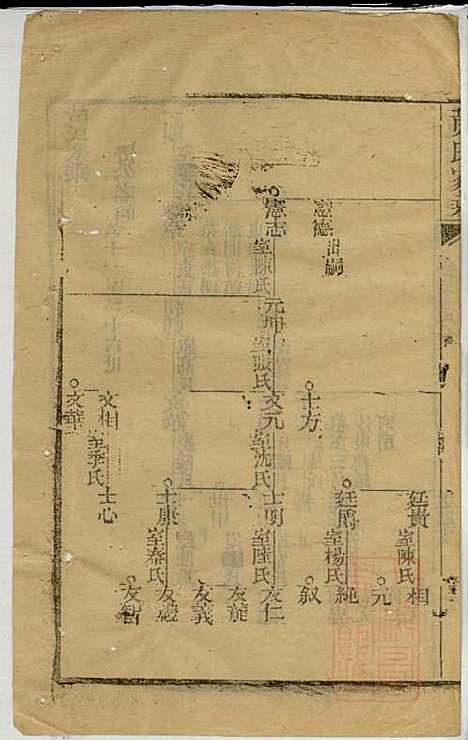 憲德 出嗣
憲志
室陳氏
元坤
室張氏
士方
文元
室沈氏
文相
室季氏
文華
廷貴
室陳氏
廷爵
室楊氏
士明
室陸氏
士康
室秦氏
士心
相
元
繩
叙
友仁
友旋
友義
友禮